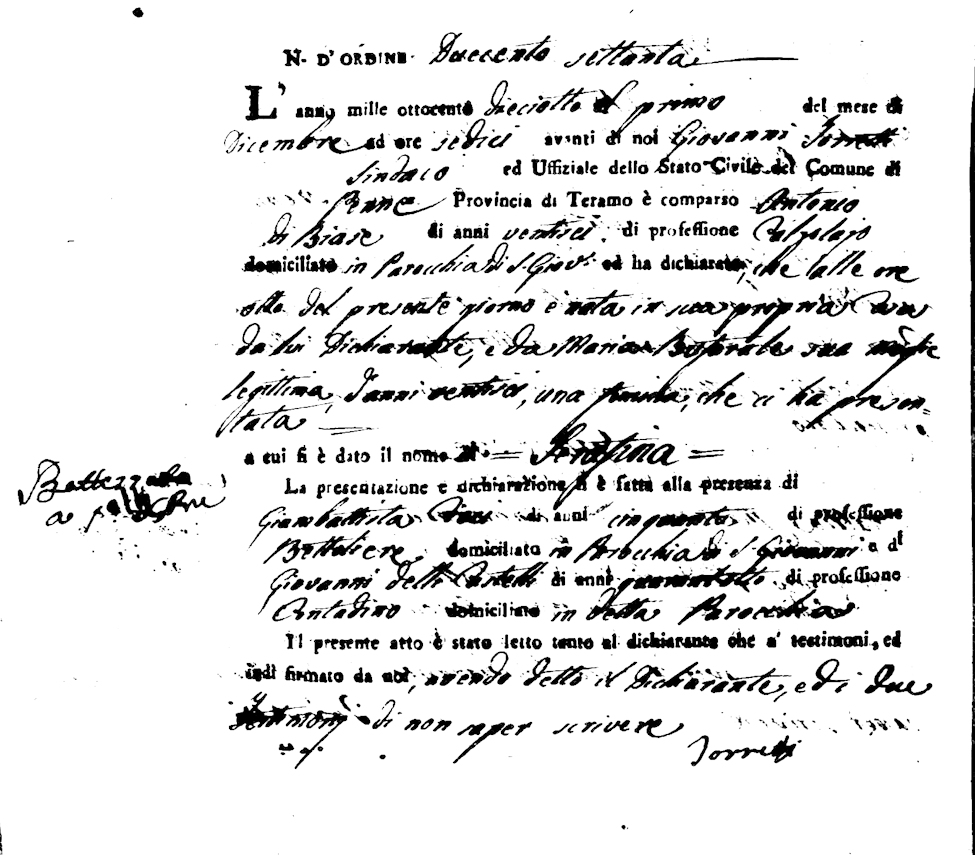 N. D'ORDINE. Duecento settanta
L' anno mille ottocento dieciotto il primo del mese di
Dicembre ad ore sedici avanti di noi Giovanni Torretti
Sindaco ed Uffiziale dello Stato Civile del Comune di
Penne Provincia di Teramo è comparso Antonio
di Biase di anni ventisei di professione Calzolajo
domiciliato in Parocchia di S. Giov.i ed ha dichiarato, che alle ore
otto del presente giorno è nata in sua propria Casa
da lui Dichiarante, e da Maria sua moglie
legittima d'anni ventisei, una, che ci ha presen-
tata
a cui si è dato il nome di = Serafina =
La presentazione e dichiarazione si è fatta alla presenza di
Giambattista di anni cinquanta di professione
domiciliato in Parocchia di S. Giovanni e di
Giovanni delli Castelli di anni quarantotto di professione
Contadino domiciliato in detta Parocchia
Il presente atto è stato letto tanto al dichiarante che a' testimoni, ed
indi firmato da noi, avendo detto il Dichiarante, ed i due
Testimonj di non saper scrivere
Torretti
Battezzata
a